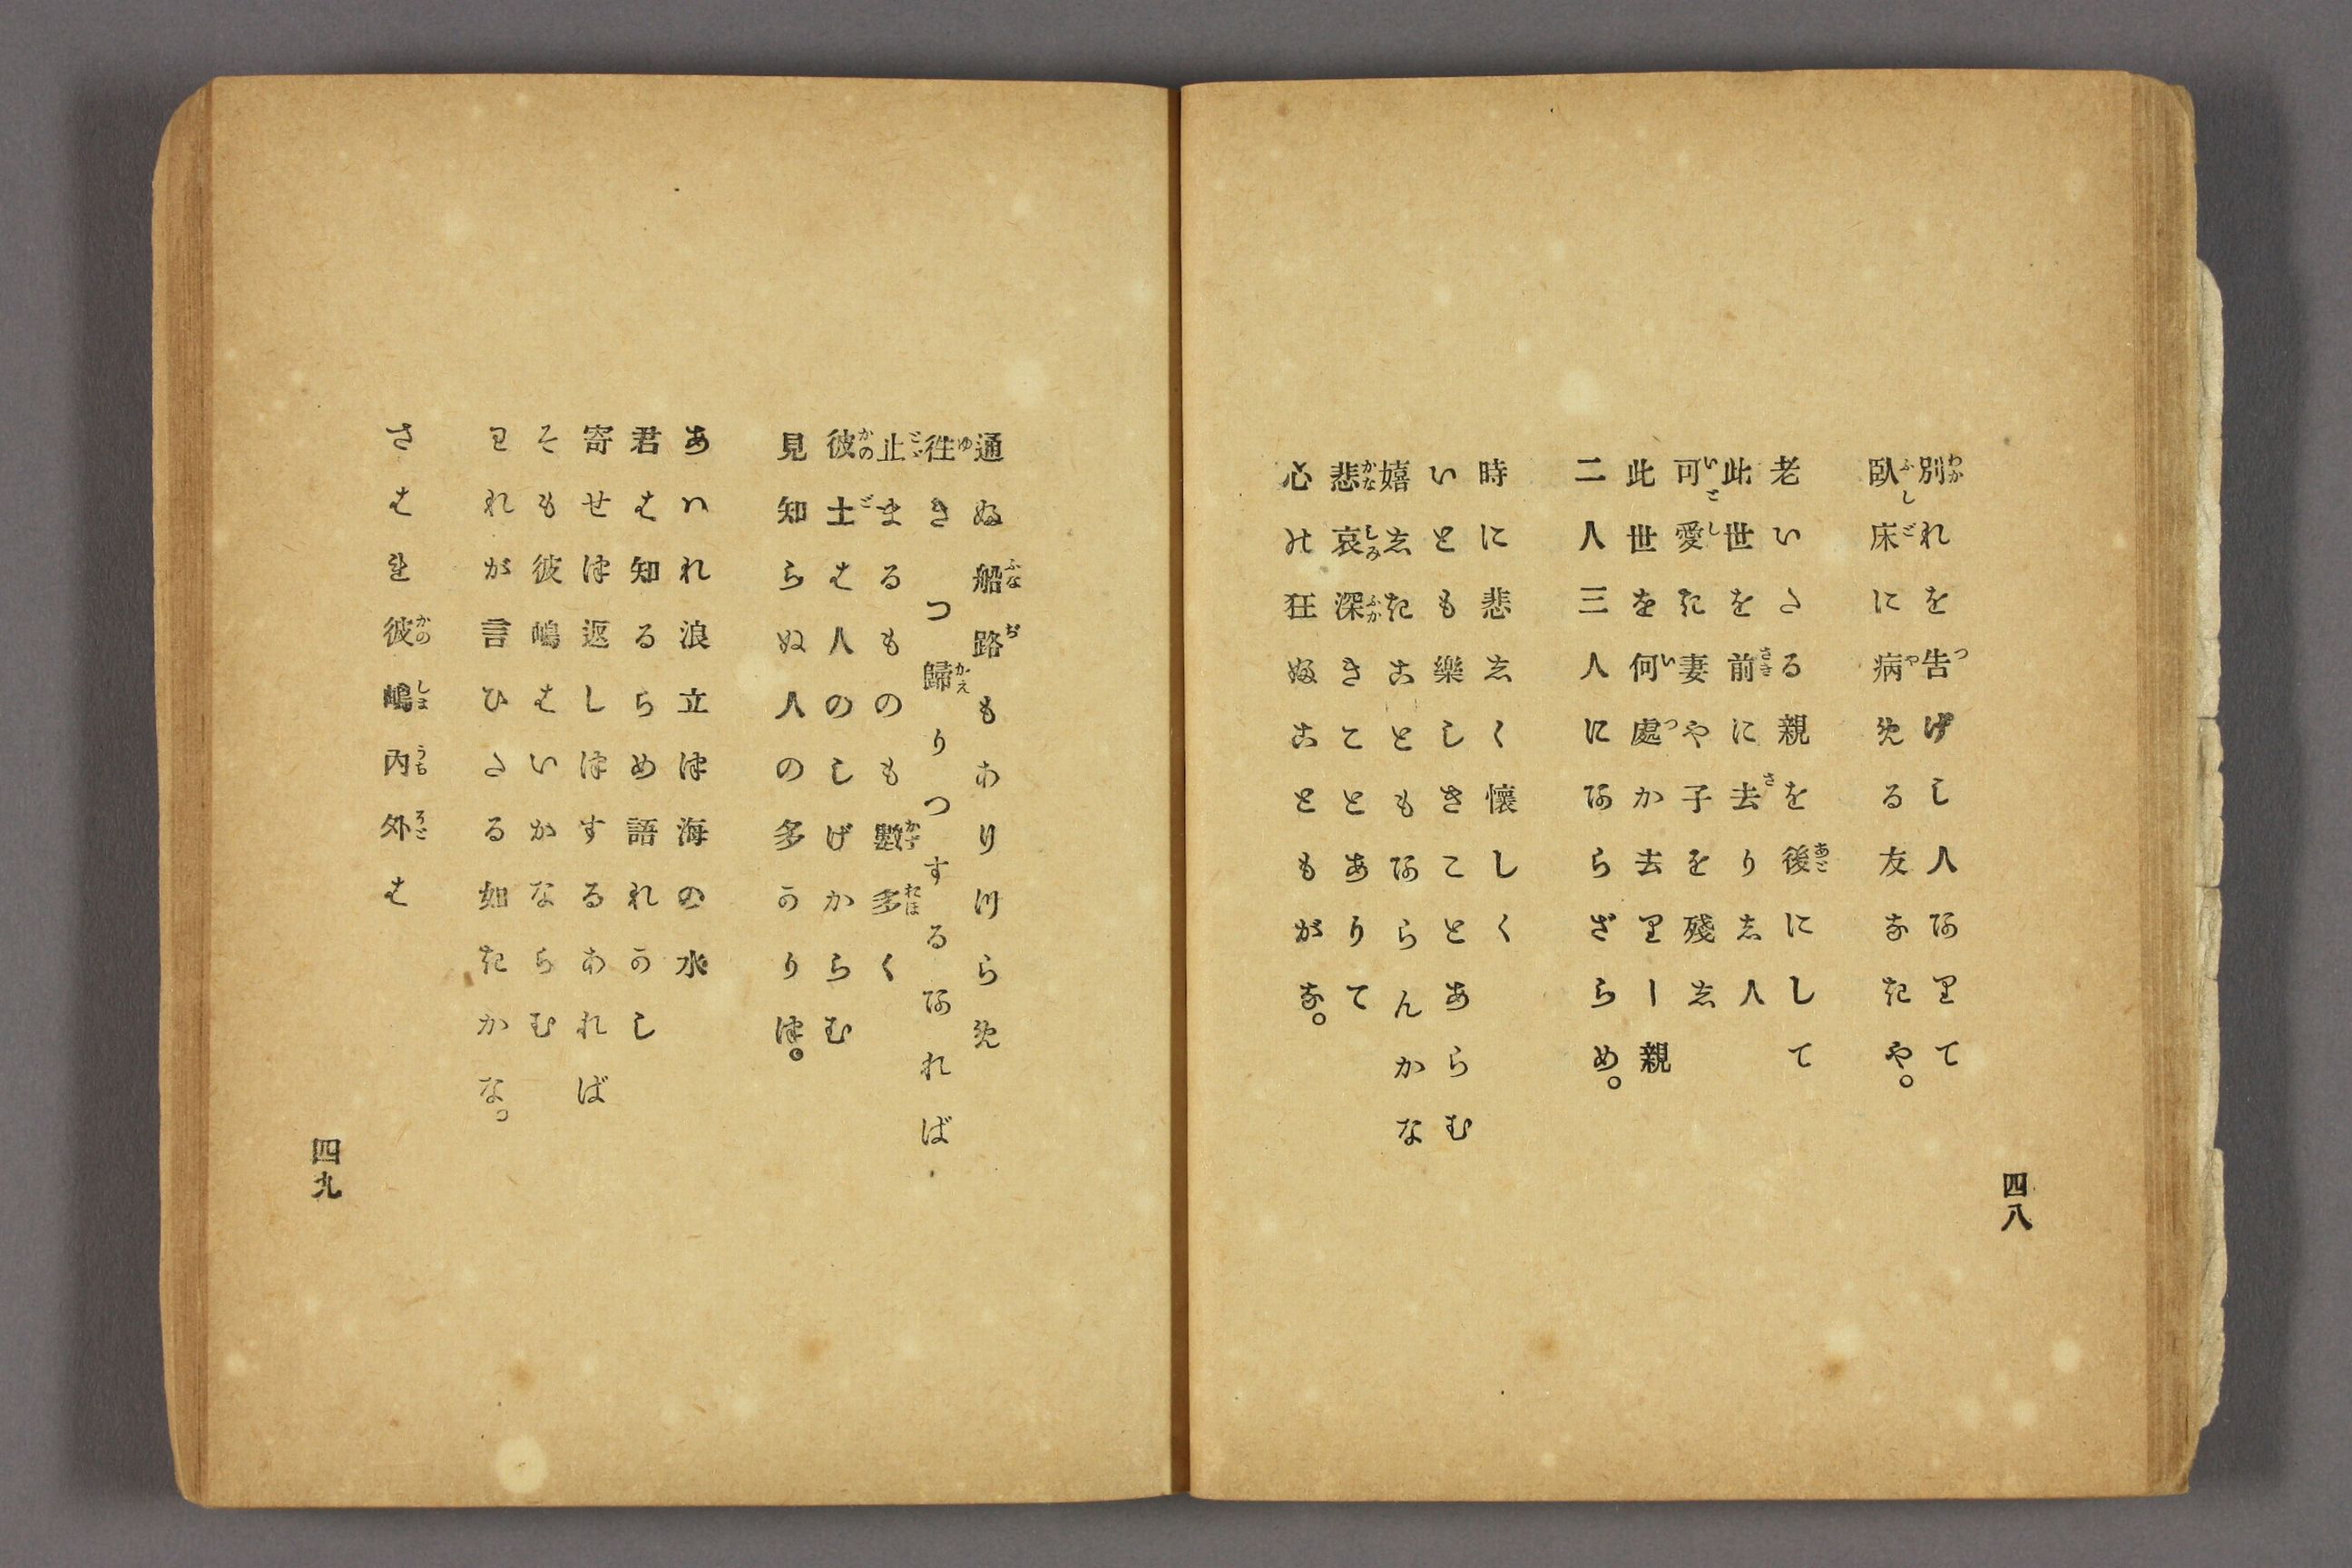 四八
別れを告げし人ありて
臥床に病める友なきや。
老いたる親を後にして
此世を前に去りし人
可愛き妻や子を殘し
此世を何處か去りー親
二人三人にあらざらめ。
時に悲しく懷しく
いとも樂しきことあらむ
嬉しきこともあらんかな
悲哀深きことありて
心の狂ふこともがな。
通ふ船路もありつらめ
往きつ歸りつするあれば
止まるものも數多く
彼土は人のしげからむ
見知らぬ人の多かりつ。
あはれ浪立つ海の水
君は知るらめ語れかし
寄せつ返しつするあれば
そも彼嶋はいかならむ
われが言ひたる如きかな。
さはれ彼嶋內外は
四九